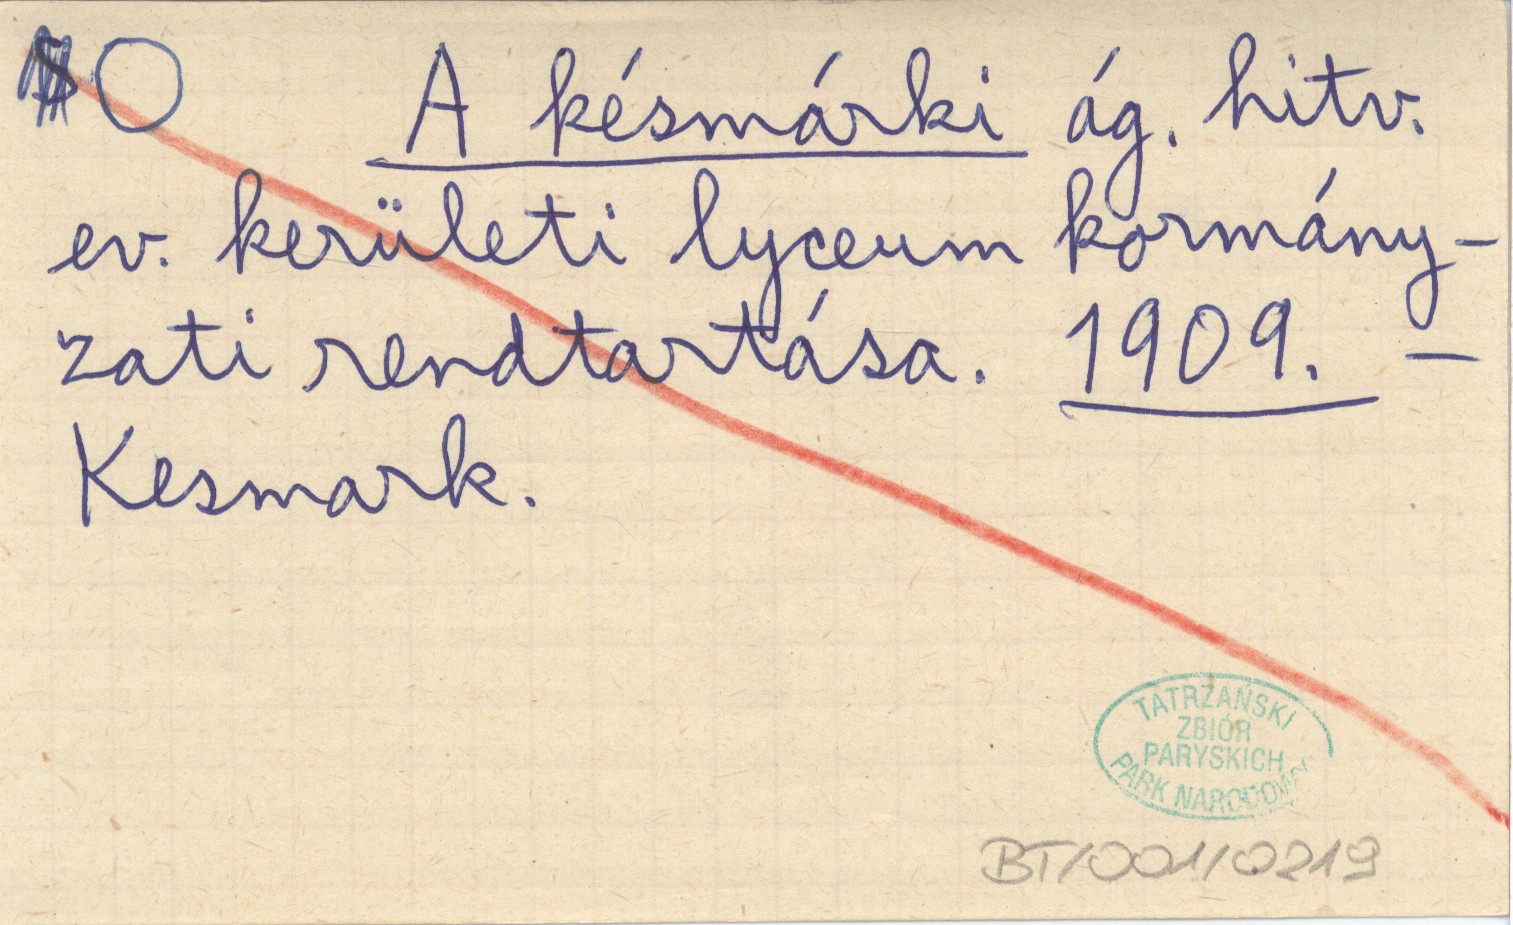 A késmárki ág. hitv.
ev. kerületi lyceum kormány-
zati rendtartása. 1909. —
Kesmark.
TATRZAŃSKI
ZBIÓR
PARYSKICH
PARK NARODOWY
BT/001/0219